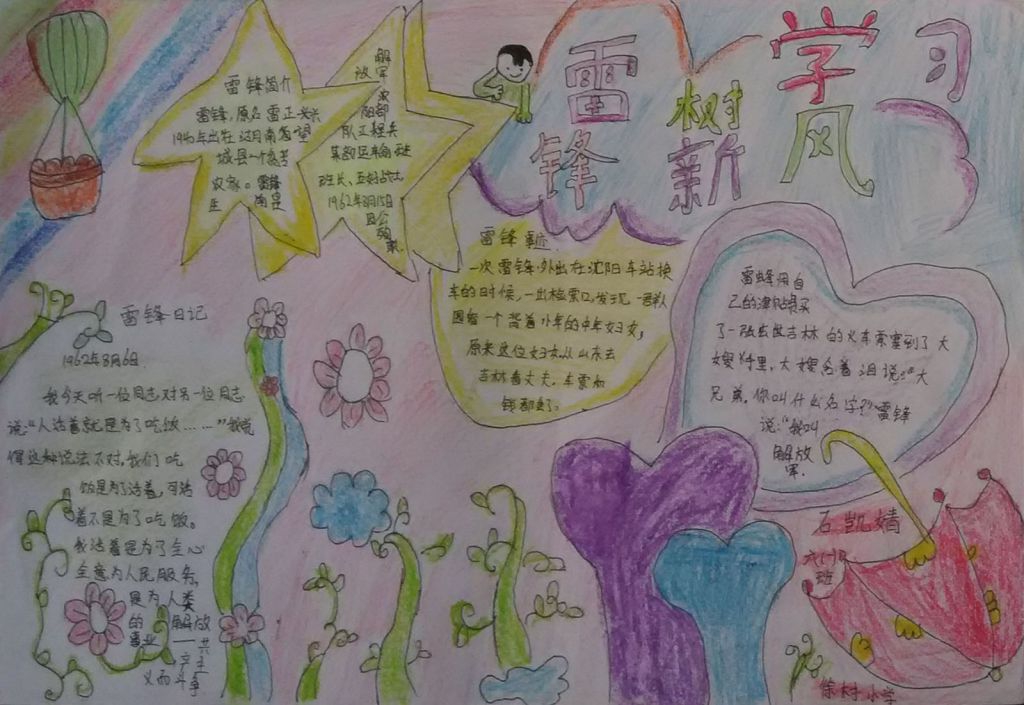 学习
雷锋
树
新风
雷锋简介
雷锋，原名雷正兴
1940年出在湖南省望
城县一个贫苦
农家。雷锋
生
解
放军
沈阳部
队工程兵
某部运输
班长、五好战士
1962年8月15日
因公
殉职
雷锋事迹
一次雷锋外出在沈阳车站换
车的时候，一出检票口，发现一群人
围着一个背着小孩的中年妇女，
原来这位妇女从山东去
吉林看丈夫，车票和
钱都丢了。
雷锋用自
己的津贴费买
了一张去吉林的火车票塞到了大
嫂手里，大嫂含着泪说：“大
兄弟，你叫什么名字？”雷锋
说：“我叫
解放
军。
雷锋日记
1962年3月6日
我今天听一位同志对另一位同志
说：“人活着就是为了吃饭……”我觉
得这种说法不对，我们吃
饭是为了活着，可活
着不是为了吃饭。
我活着是为了全心
全意为人民服务，
是为人类
的解放
事业——共
产主
义而斗争
石凯婧
班
徐村小学